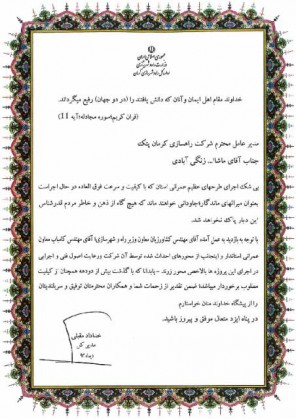 جمهوری اسلامی ایران
وزارت راه و شهرسازی
خداوند مقام اهل ایمان وآنان که دانش یافتند را (در دو جهان) رفیع میگرداند.
(قران کریم؛سوره مجادله؛آیه 11)
مدیر عامل محترم شرکت راهسازی کرمان پتک
جناب آقای ماشاا... زنگی آبادی
بی شک اجرای طرحهای عظیم عمرانی استان که با کیفیت و سرعت فوق العاده در حال اجراست
بعنوان میراثهای ماندگار؛جاودانی خواهند ماند که هیچ گاه از ذهن و خاطر مردم قدرشناس
این دیار پاک نخواهند شد.
با توجه با بازدید به عمل آمده آقای مهندس کشاورزیان معاون وزیر راه و شهرسازی؛ آقای مهندس کامیاب معاون
عمرانی استاندار و اینجانب از محورهای احداث شده توسط آن شرکت ورعایت اصول فنی و اجرایی
در اجرای این پروژه ها بالاخص محور زرند - که با گذشت بیش از دودهه همچنان از کیفیت
مطلوب برخوردار میباشد؛ ضمن تقدیر از زحمات شما و همکاران محترمتان توفیق و سربلندیتان
را از پیشگاه خداوند منان خواستارم.
در پناه ایزد متعال موفق و پیروز باشید.
خداداد مقبلی
مدیر کل